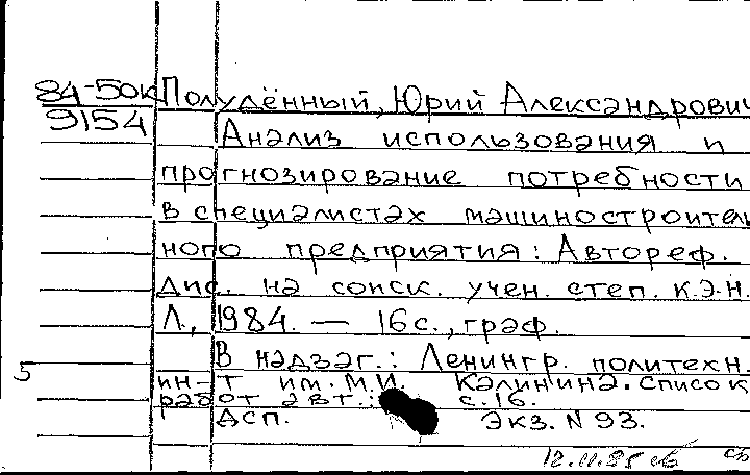 84-50к Полудённый, Юрий Александрович
9154 Анализ использования и
прогнозирование потребности
в специалистах машиностроитель
ного предприятия: Автореф.
дис. на соиск. учен. степ. к.э.н.
Л., 1984. — 16 с., граф.
В надзаг.: Ленингр. политехн.
5
ин-т им. М.И. Калинина. Список
работ авт.: с. 16.
ДСП. Экз. N 93.
12.11.85